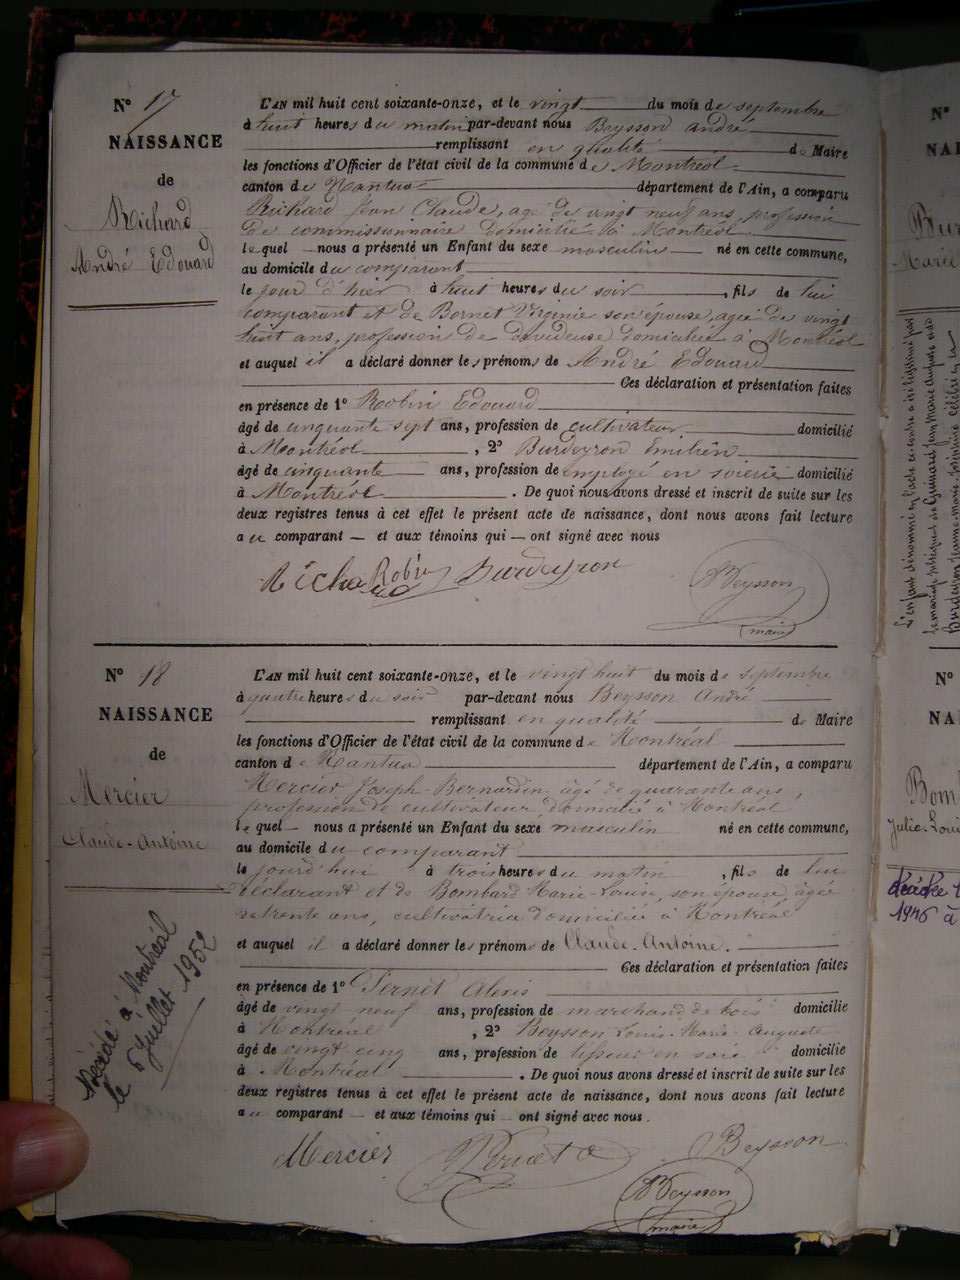 N° 17
NAISSANCE
de
Richard
André Edouard
L'AN mil huit cent soixante-onze, et le vingt du mois de septembre
à huit heures du matin par-devant nous Beysson André
remplissant en qualité de Maire
les fonctions d'Officier de l'état civil de la commune de Montréal
canton de Nantua département de l'Ain, a comparu
Richard Jean Claude, age de vingt neuf ans, profession
de commissionnaire domicilié à Montréal
lequel nous a présenté un Enfant du sexe masculin né en cette commune,
au domicile du comparant
le jour d'hier à huit heures du soir, fils de lui
comparant et de Bornet Virginie son épouse, agée de vingt
huit ans, profession de dévideuse domiciliée à Montréal
et auquel il a déclaré donner les prénoms de André Edouard
Ces déclaration et présentation faites
en présence de 1° Robin Edouard
âgé de cinquante sept ans, profession de cultivateur domicilié
à Montréal, 2° Burdeyron Emilien
âgé de cinquante ans, profession de employé en soierie domicilié
à Montréal. De quoi nous avons dressé et inscrit de suite sur les
deux registres tenus à cet effet le présent acte de naissance, dont nous avons fait lecture
au comparant — et aux témoins qui — ont signé avec nous
Richard Robin Burdeyron Beysson
maire
N° 18
NAISSANCE
de
Mercier
Claude-Antoine
L'AN mil huit cent soixante-onze, et le vingt huit du mois de septembre
à quatre heures du soir par-devant nous Beysson André
remplissant en qualité de Maire
les fonctions d'Officier de l'état civil de la commune de Montréal
canton de Nantua département de l'Ain, a comparu
Mercier Joseph-Bernardin, âgé de quarante ans,
profession de cultivateur, domicilié à Montréal
lequel — nous a présenté un Enfant du sexe masculin né en cette commune,
au domicile du comparant
le jourd'hui à trois heures du matin, fils de lui
déclarant et de Bombard Marie-Louise, son épouse, âgée
de trente ans, cultivatrice domiciliée à Montréal
et auquel il a déclaré donner les prénoms de Claude-Antoine.
Ces déclaration et présentation faites
en présence de 1° Pernet Alexis
âgé de vingt neuf ans, profession de marchand de bois domicilié
à Montréal, 2° Beysson Louis-Marie-Auguste
âgé de vingt cinq ans, profession de tisseur en soie domicilié
à Montréal. De quoi nous avons dressé et inscrit de suite sur les
deux registres tenus à cet effet le présent acte de naissance, dont nous avons fait lecture
au comparant — et aux témoins qui — ont signé avec nous.
Mercier Pernet a Beysson
Beysson
maire
Décédé à Montréal
le 6 Juillet 1952
N°
NAI
Bur
Marie
N°
NA
Bomb
Julie-Loui
décédée
1946 à